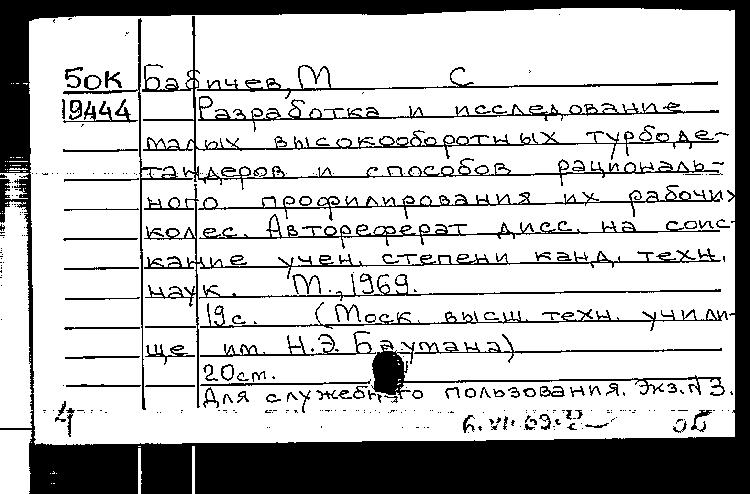 Бок Бабичев, М С
19444 Разработка и исследование
малых высокооборотных турбоде-
тандеров и способов рациональ-
ного профилирования их рабочих
колес. Автореферат дисс. на соис-
кание учен. степени канд. техн.
наук. М., 1969.
19 с. (Моск. высш. техн. учили-
ще им. Н.Э. Баумана)
20 см.
Для служебного пользования. Экз. № 3.
4 об